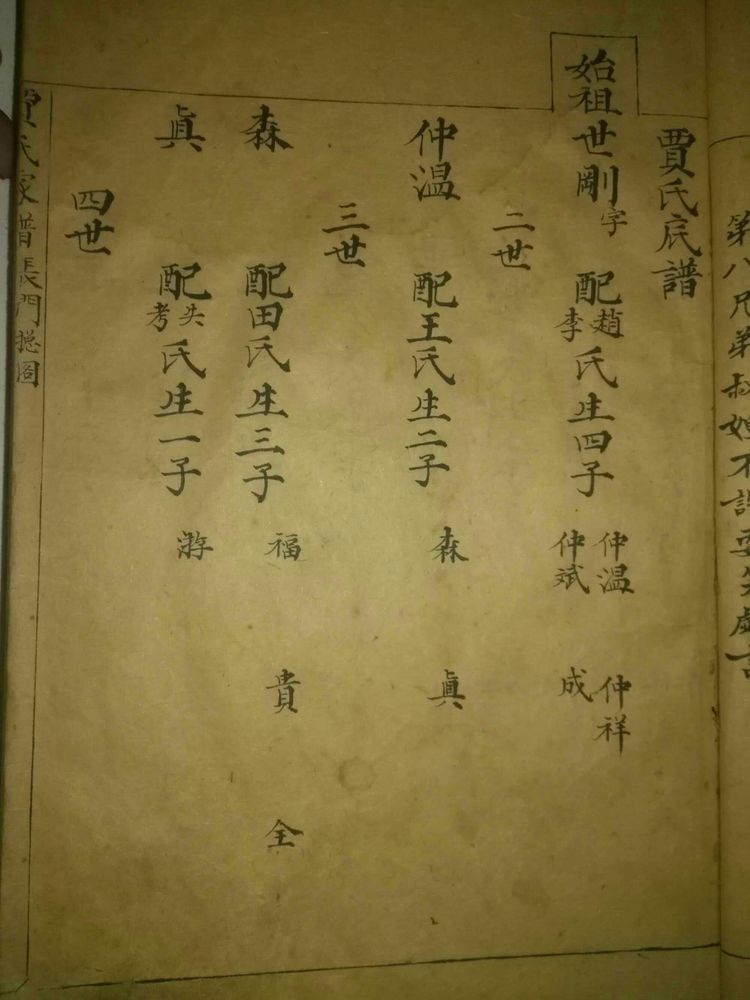 第八凡弟叔嫂不許耍笑戲言
賈氏宗譜
始祖世剛字配趙李氏生四子 仲温 仲祥 仲斌 成
二世
仲温 配王氏生二子 森 眞
三世
森 配田氏生三子 福 貴 全
眞 配失考氏生一子 游
四世
賈氏家譜長門捴圖